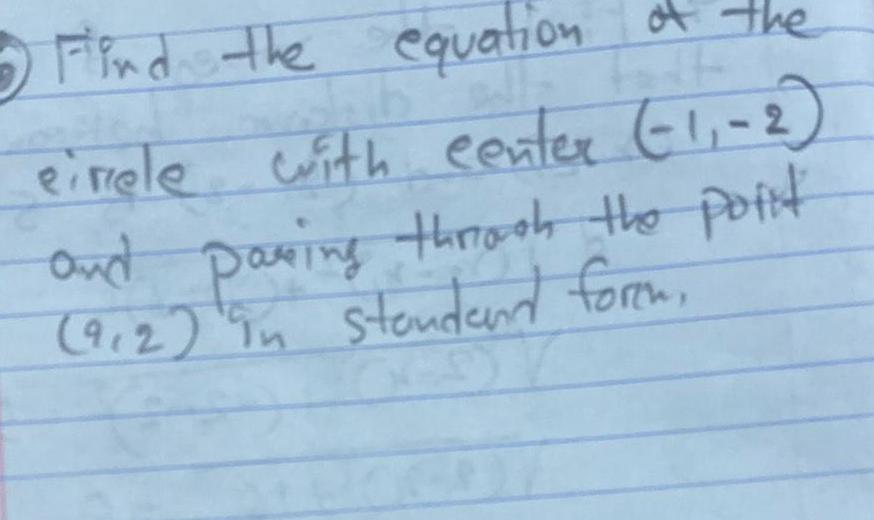 Find the equation of the
circle with center (-1,-2)
and passing through the point
(9,2) in standard form.